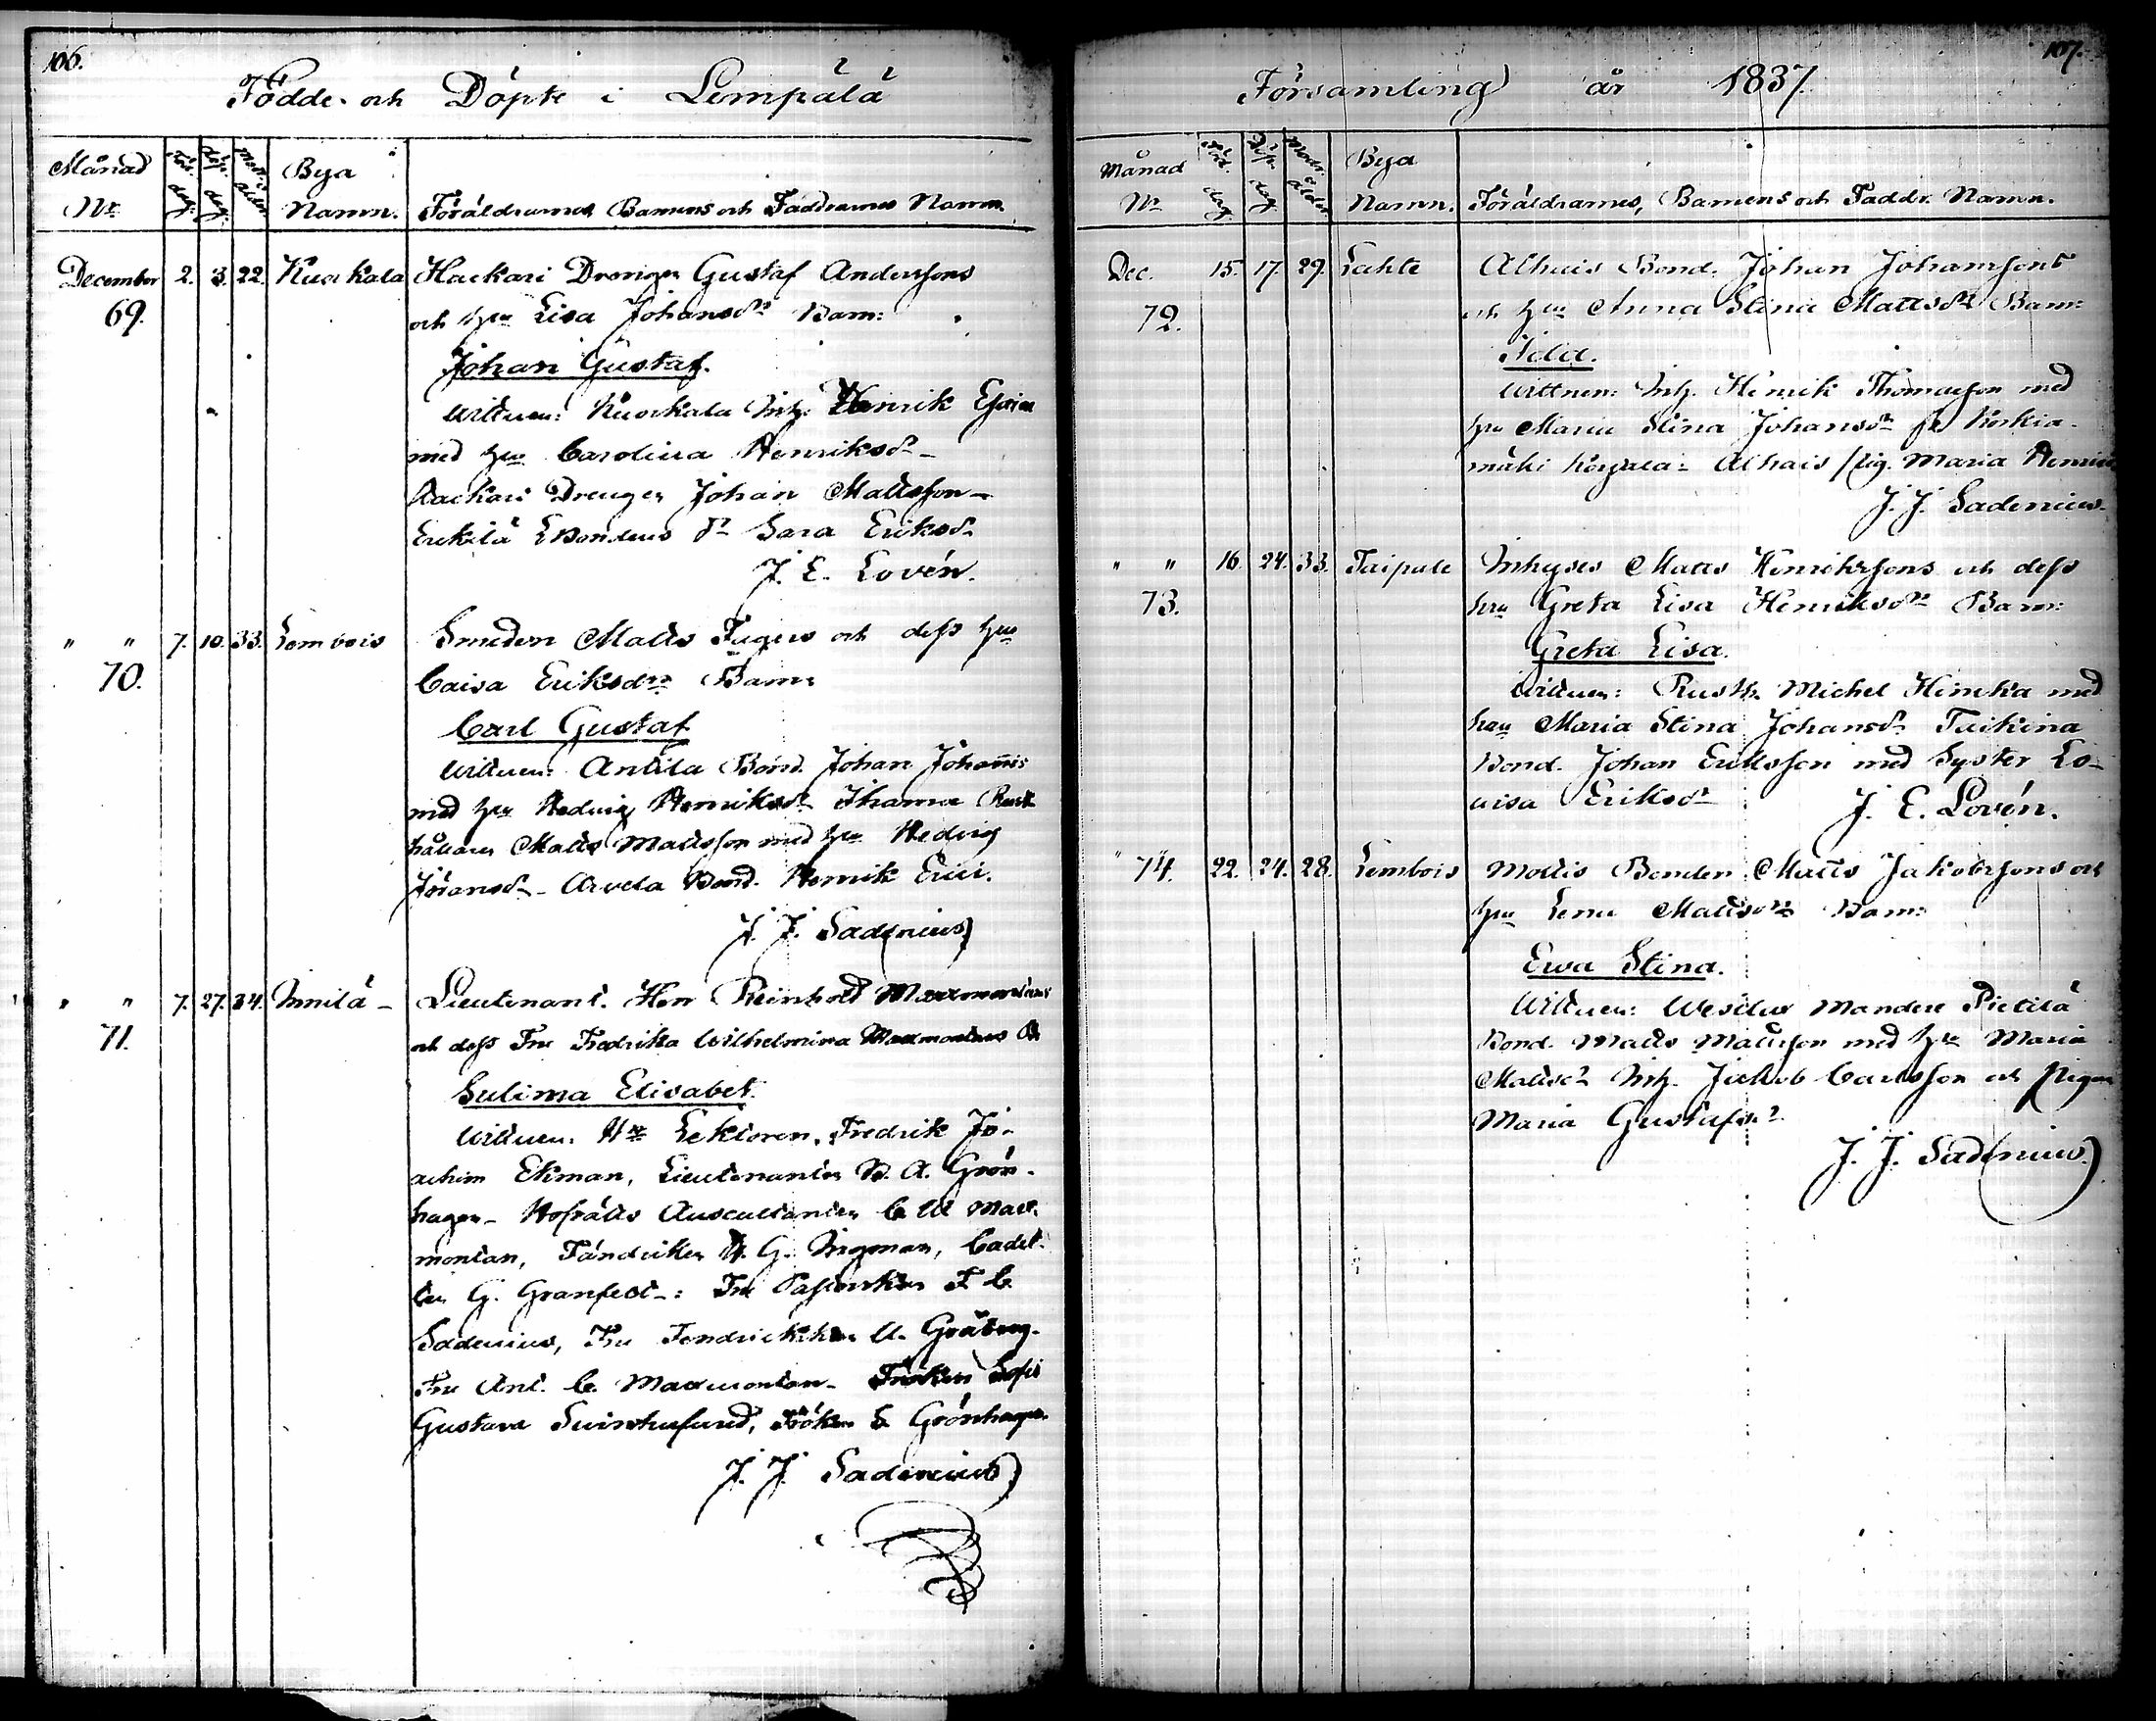 106.
Födde och Döpte i Lempälä
Månad Föd. dag. döp. dag. Bya
No Namn. Föräldrarnes Barnens och Faddrarnes Namn.
December 2. 3. 22. Kuokkala Hackari Drengen Gustaf Anderssons
69. och hu Lisa Johansdrs Barn:
Johan Gustaf.
Wittnen: Kuokkala Inh. Henrik
med hu Carolina Henriksdr
Hackari Drengen Johan Mattsson
Erkkilä Bondens dr Sara Eriksdr
J. E. Lovén.
" " 7. 10. 33. Lembois Smeden Matts och dess hu
70. Caisa Eriksdrs Barn
Carl Gustaf
Wittnen: Anttila Bond. Johan Johans
med hu Hedvig Henriksdr Rust
hållaren Matts Mattsson med hu Hedvig
Jöransdr Arvela Bond. Henrik Erici.
J. J. Sadenius
" " 7. 27. 34. Innilä Lieutenant. Herr Reinhold Maxmontans
71. och dess Fru Fredrika Wilhelmina Maxmontans B
Sulima Elisabet.
Wittnen. Hr Lektoren, Fredrik Jo-
achim Ekman, Lieutenanten A. Grön-
hagen Hofrätts Auscultanten C W Max-
montan, Fändriken G. Ingman, Cadet-
ten G. Granfelt: Fru F C
Sadenius, Fru U. Gråberg.
Fru C. Maxmontan Fröken Sofi
Gustava Svinhufvud, Fröken S Grönhagen
J. J. Sadenius
107.
Församling år 1837.
Månad Föd. dag Döp. dag. Modr. ålder Bya
No Namn. Föräldrarnes, Barnens och Faddr. Namn.
Dec. 15. 17. 29. Lahte Alhais Bond. Johan Johanssons
72. och hu Anna Stina Mattsdrs Barn:
Ida.
Wittnen: Inh. Henrik Thomasson med
hu Maria Stina Johansdr fr Korkia-
mäki Alhais pig. Maria
J. J. Sadenius.
" " 16. 24. 33. Taipale Inhyses Matts Henrikssons och dess
73. hu Greta Lisa Henriksdrs Barn:
Greta Lisa.
Wittnen: Rusth. Michel Himka med
hu Maria Stina Johansdr
Bond. Johan Eriksson med Syster Lo-
visa Eriksdr J. E. Lovén.
" 74. 22. 24. 28. Lembois Mattis Bonden Matts Jakobssons och
hu Lena Mattsdrs Barn:
Ewa Stina.
Wittnen: Mandere Pietilä
Bond. Matts Mattsson med hu Maria
Mattsdr Inh. Jakob Carlsson och Pigan
Maria Gustafsdr
J. J. Sadenius.